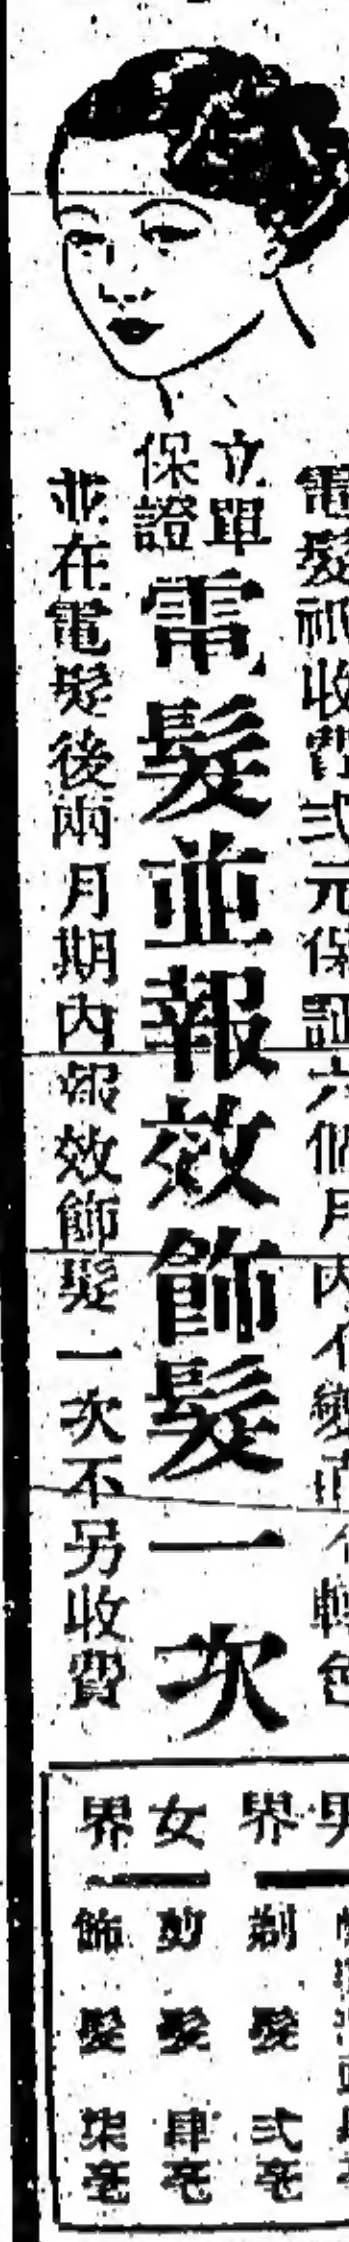 電髮祇收費弍元保証六個月內不變直不轉色
立單保證
電髮並報效飾髮一次
並在電髮後兩月期內報效飾髮一次不另收費
男界
剃髮弍毫
女界
剪髮肆毫
飾髮柒毫